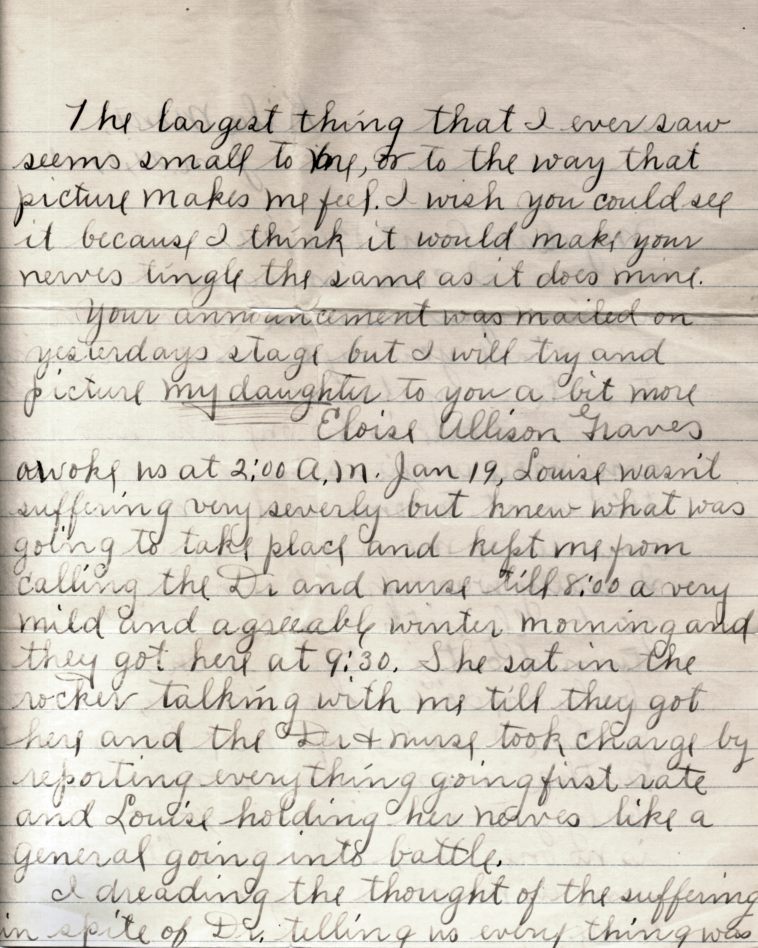 The largest thing that I ever saw
seems small to me, or to the way that
picture makes me feel. I wish you could see
it because I think it would make your
nerves tingle the same as it does mine.
Your announcement was mailed on
yesterdays stage but I will try and
picture my daughter to you a bit more
Eloise Allison Graves
awoke us at 2:00 A.M. Jan 19, Louise wasn't
suffering very severly but knew what was
going to take place and kept me from
calling the Dr and nurse till 8:00 a very
mild and agreeable winter morning and
they got here at 9:30. She sat in the
rocker talking with me till they got
here and the Dr & nurse took charge by
reporting everything going first rate
and Louise holding her nerves like a
general going into battle.
I dreading the thought of the suffering
in spite of Dr. telling us every thing was